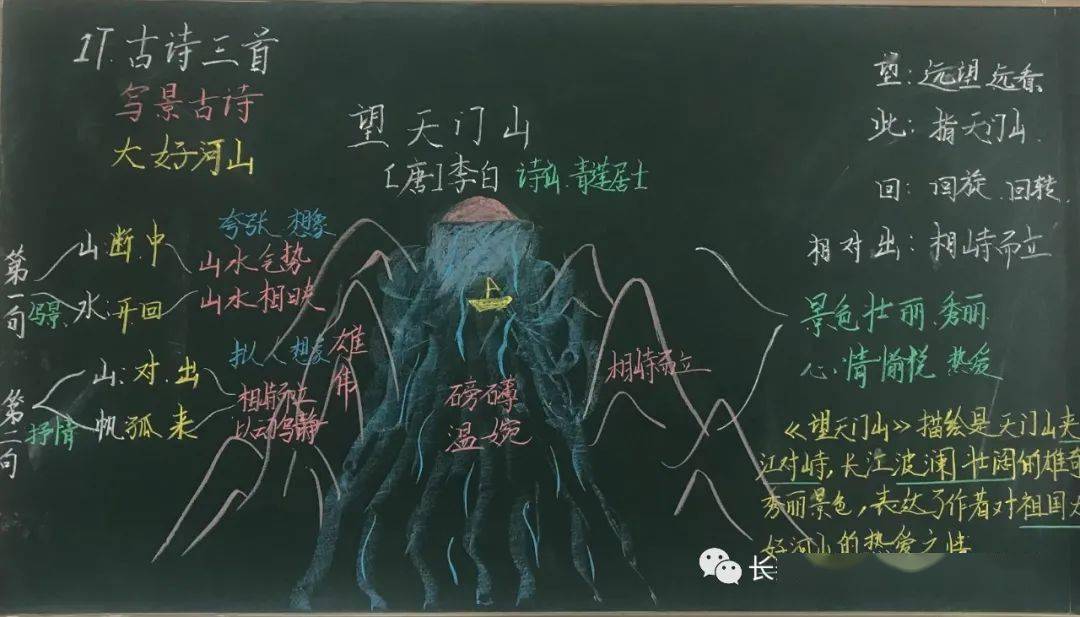 17.古诗三首
写景古诗
大好河山
望天门山
[唐]李白 诗仙.青莲居士
第一句
写景
山:断.中
水:开.回
夸张.想象
山水气势
山水相映
第二句
抒情
山:对.出
帆孤来
拟人.想象
相峙而立
以动写静
雄伟
磅礴
温婉
相峙而立
望:远望远看
此:指天门山.
回:回旋.回转.
相对出:相峙而立
景色壮丽.秀丽
心情愉悦 热爱
《望天门山》描绘是天门山夹
江对峙,长江波澜壮阔的雄奇
秀丽景色,表达了作者对祖国大
好河山的热爱之情
长